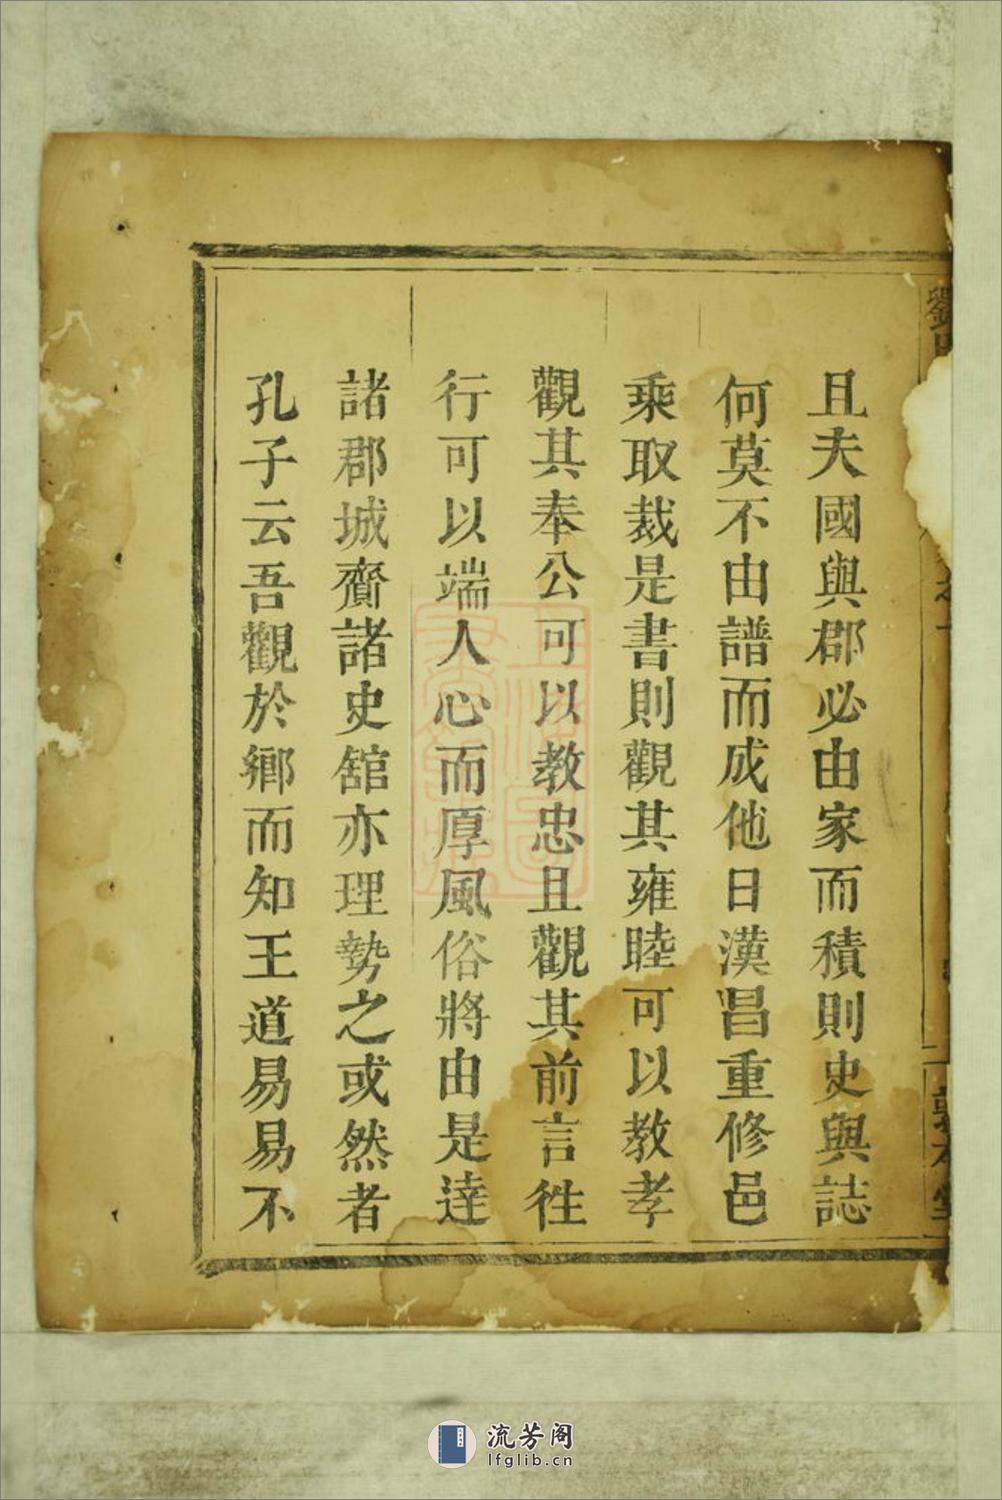 且夫國與郡必由家而積則史與誌
何莫不由譜而成他日漢昌重修邑
乘取裁是書則觀其雍睦可以教孝
觀其奉公可以教忠且觀其前言徃
行可以端人心而厚風俗將由是達
諸郡城齎諸史舘亦理勢之或然者
孔子云吾觀於鄉而知王道易易不
流芳阁
lfglib.cn